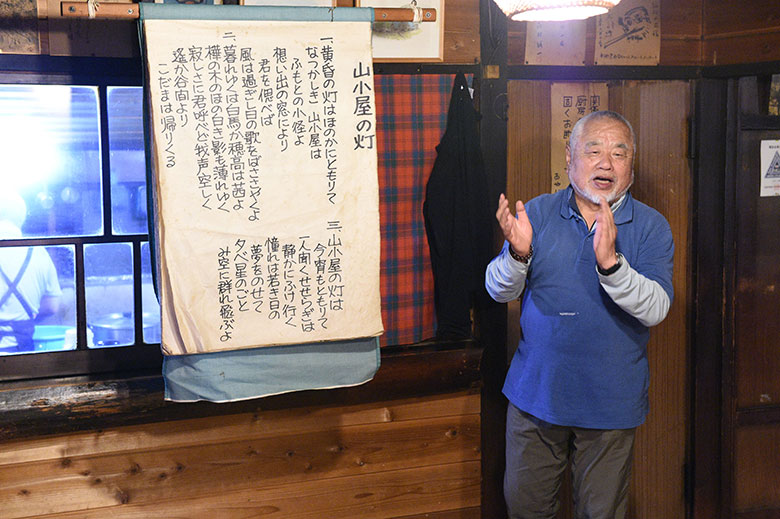 山小屋の灯
一、黄昏の灯はほのかにともりて
なつかしき 山小屋は
ふもとの小径よ
想い出の窓により
君を偲べば
風は過ぎし日の歌をばささやくよ
二、暮れゆくは白馬か穂高は茜よ
樺の木のほの白き影も薄れゆく
寂しさに君呼べど我声空しく
遙か谷間より
こだまは帰りくる
三、山小屋の灯は
今宵もともりて
一人聞くせせらぎは
静かにふけ行く
憧れは若き日の
夢をのせて
夕べ星のごと
み空に群れ飛ぶよ
厨房
固くお断